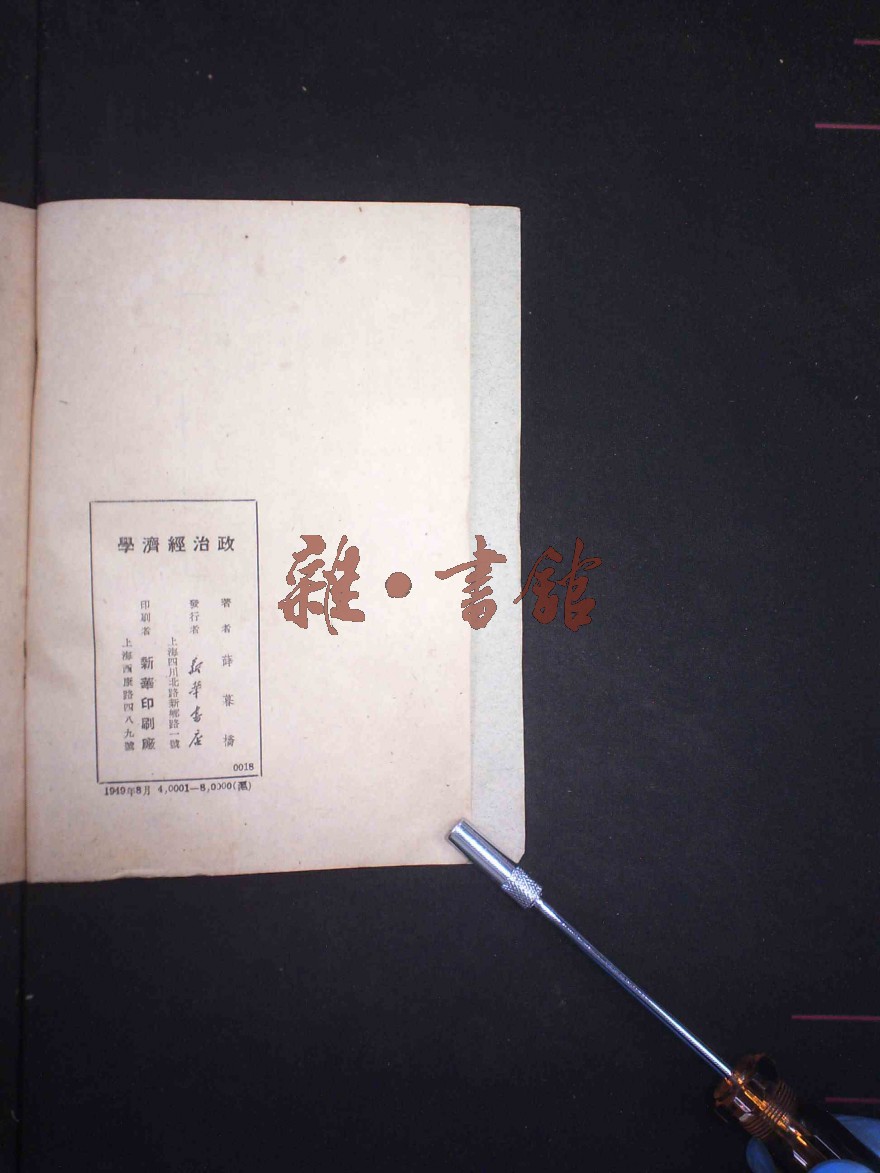 政治經濟學
著者 薛暮橋
發行者 新華書店
上海四川北路新鄉路一號
印刷者 新華印刷廠
上海西康路四八九號
0018
1949年8月 4,0001—8,0000(滬)
雜·書館